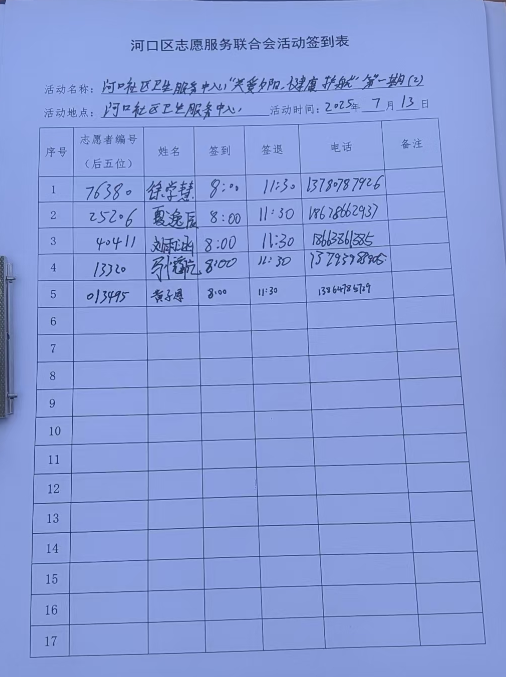 河口区志愿服务联合会活动签到表
活动名称：河口社区卫生服务中心"关爱夕阳、健康护航"第一期(2)
活动地点：河口社区卫生服务中心 活动时间：2025年7月13日
序号 志愿者编号（后五位） 姓名 签到 签退 电话 备注
1 76380 徐学慧 8:00 11:30 13780787926
2 25206 夏逸辰 8:00 11:30 18678662937
3 40411 8:00 11:30
4 13320 8:00 11:30
5 013495 黄子恩 8:00 11:30
6
7
8
9
10
11
12
13
14
15
16
17